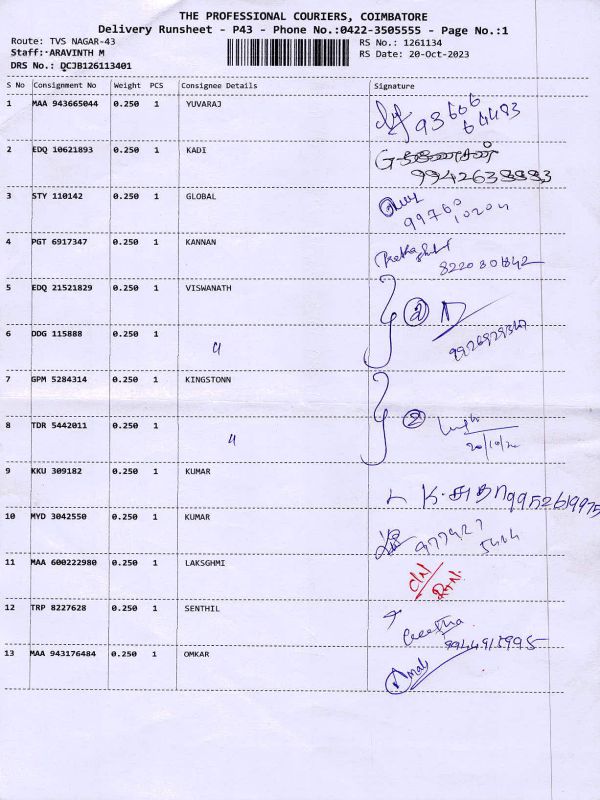 THE PROFESSIONAL COURIERS, COIMBATORE
Delivery Runsheet - P43 - Phone No.:0422-3505555 - Page No.:1
Route: TVS NAGAR-43 RS No.: 1261134
Staff: ARAVINTH M RS Date: 20-Oct-2023
DRS No.: DCJB126113401
S No Consignment No Weight PCS Consignee Details Signature
1 MAA 943665044 0.250 1 YUVARAJ 93606 64483
2 EDQ 10621893 0.250 1 KADI
3 STY 110142 0.250 1 GLOBAL 99760 10204
4 PGT 6917347 0.250 1 KANNAN
5 EDQ 21521829 0.250 1 VISWANATH 2
6 DDG 115888 0.250 1 4
7 GPM 5284314 0.250 1 KINGSTONN
8 TDR 5442011 0.250 1 4 2
9 KKU 309182 0.250 1 KUMAR K. சுதா 9952619975
10 MYD 3042550 0.250 1 KUMAR
11 MAA 600222980 0.250 1 LAKSGHMI
12 TRP 8227628 0.250 1 SENTHIL Geetha
13 MAA 943176484 0.250 1 OMKAR Amal